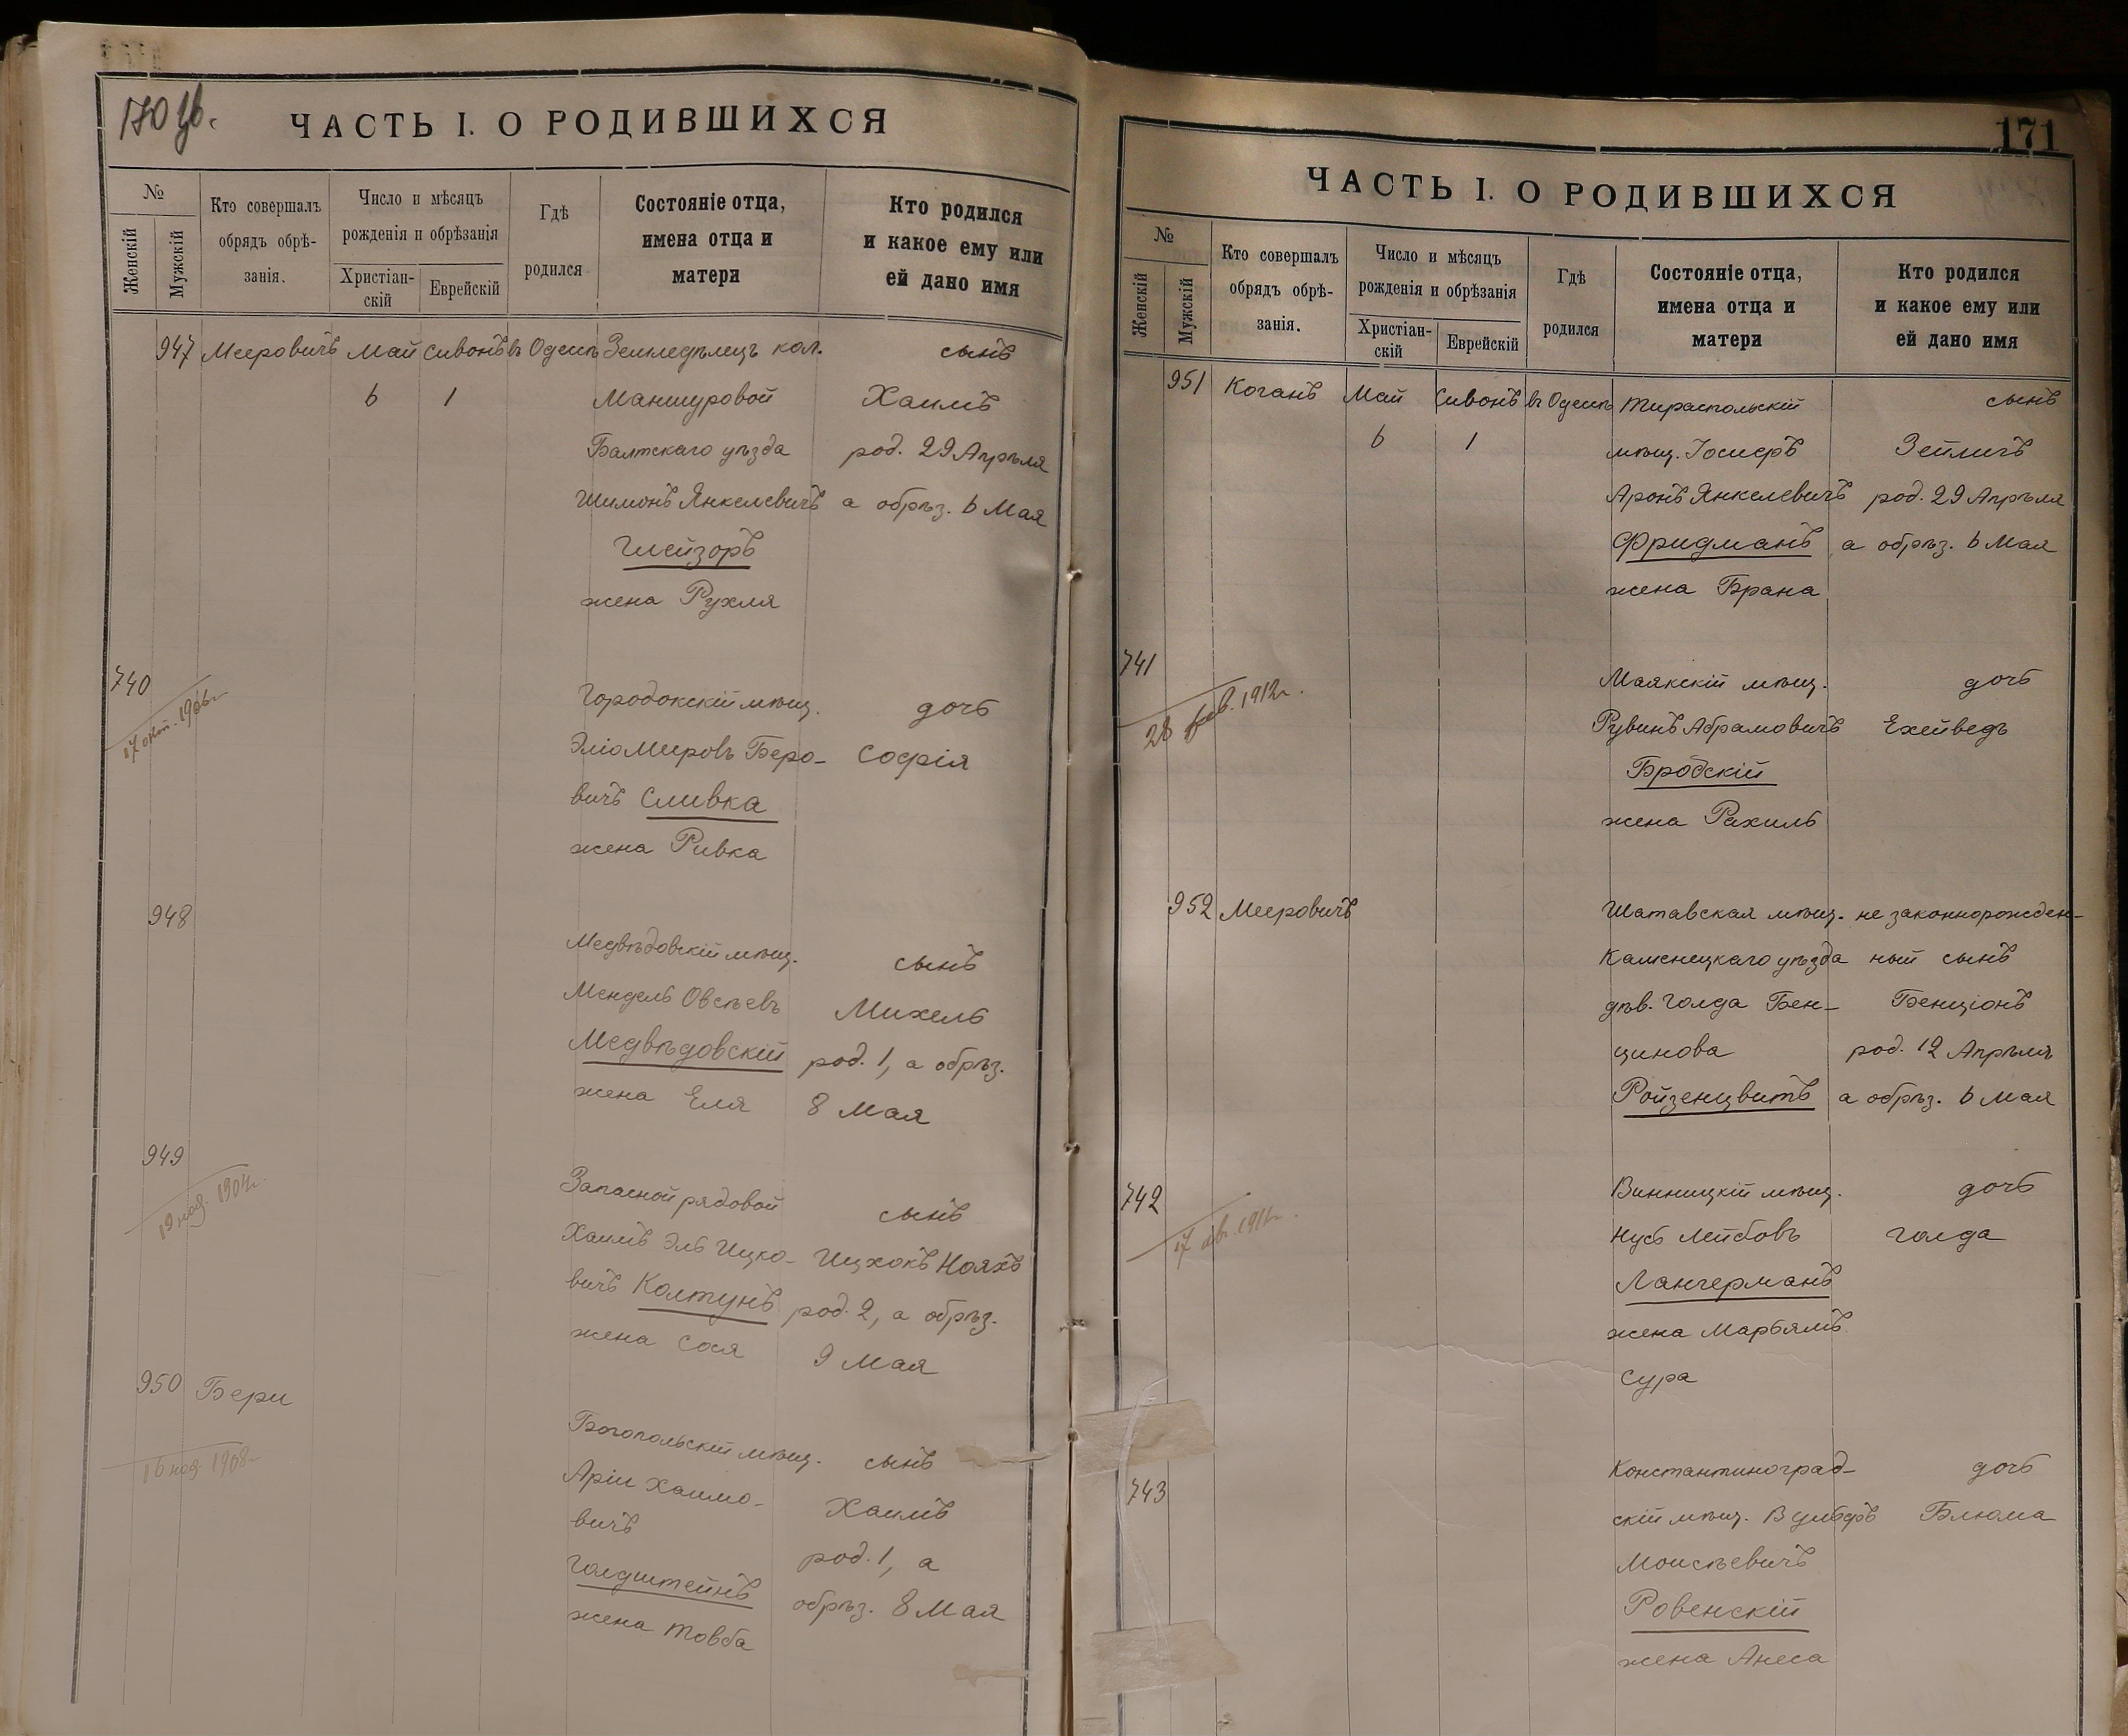 170 об.
ЧАСТЬ I. О РОДИВШИХСЯ
№
Женскій
Мужскій
Кто совершалъ
обрядъ обрѣ-
занія.
Число и мѣсяцъ
рожденія и обрѣзанія
Христіан-
скій
Еврейскій
Гдѣ
родился
Состояніе отца,
имена отца и
матери
Кто родился
и какое ему или
ей дано имя
947 Мееровичъ Май Сивонъ въ Одессѣ Земледѣлецъ кол. сынъ
6 1 Маншуровой Хаимъ
Балтскаго уѣзда род. 29 Апрѣля
Шимонъ Янкелевичъ а обрѣз. 6 Мая
Глейзоръ
жена Рухля
740
17 окт. 1906 г.
Городокскій мѣщ. дочь
Эліо Меировъ Беро- Софія
вичъ Сливка
жена Ривка
948
Медвѣдовскій мѣщ. сынъ
Мендель Овсѣевъ Михель
Медвѣдовскій род. 1, а обрѣз.
жена Еля 8 Мая
949
19 ноя. 1904 г.
Запасной рядовой сынъ
Хаимъ Эль Ицко- Ицхокъ Нояхъ
вичъ Колтунъ род. 2, а обрѣз.
жена Сося 9 Мая
950 Бери
16 ноя. 1908
Богопольскій мѣщ. сынъ
Аріи Хаимо- Хаимъ
вичъ род. 1, а
Голдштейнъ обрѣз. 8 Мая
жена Товба
171
ЧАСТЬ I. О РОДИВШИХСЯ
№
Женскій
Мужскій
Кто совершалъ
обрядъ обрѣ-
занія.
Число и мѣсяцъ
рожденія и обрѣзанія
Христіан-
скій
Еврейскій
Гдѣ
родился
Состояніе отца,
имена отца и
матери
Кто родился
и какое ему или
ей дано имя
951 Коганъ Май Сивонъ въ Одессѣ Тираспольскій сынъ
6 1 мѣщ. Іосифъ Зейлигъ
Аронъ Янкелевичъ род. 29 Апрѣля
Фридманъ а обрѣз. 6 Мая
жена Брана
741
28 фев. 1912 г.
Маякскій мѣщ. дочь
Рувинъ Абрамовичъ Ехейведъ
Бродскій
жена Рахиль
952 Мееровичъ Шатавская мѣщ. не законнорожден-
Каменецкаго уѣзда ный сынъ
дѣв. Голда Бен- Бенціонъ
цинова род. 12 Апрѣля
Ройзенцвитъ а обрѣз. 6 Мая
742
Винницкій мѣщ. дочь
Нусь Лейбовъ Голда
Лангерманъ
жена Марьямъ
Сура
743
Константиноград- дочь
скій мѣщ. Вульфъ Блюма
Моисѣевичъ
Ровенскій
жена Анеса